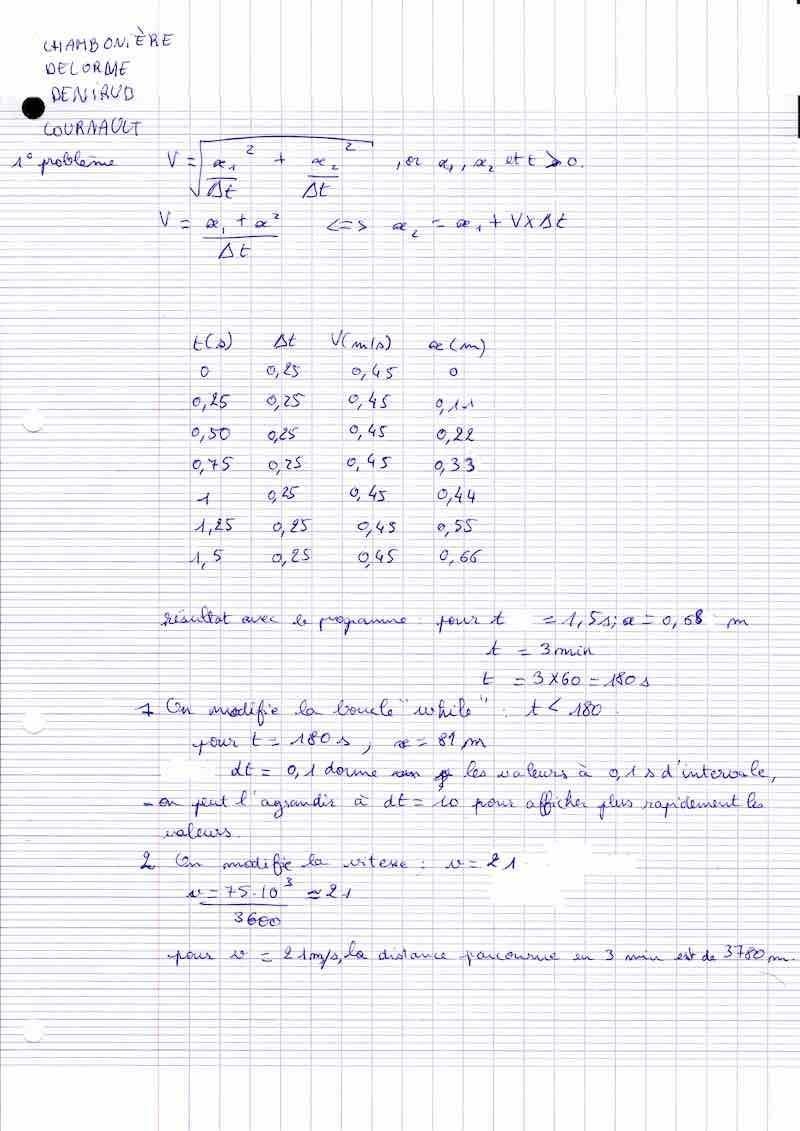 CHAMBONIÈRE
DELORME
DENIAUD
COURNAULT
1° problème V = √( x₁²/Δt + x₂²/Δt ) , or x₁, x₂ et t > 0.
V = (x₁ + x²)/Δt <=> x₂ = x₁ + V x Δt
t(s) Δt V(m/s) x(m)
0 0,25 0,45 0
0,25 0,25 0,45 0,11
0,50 0,25 0,45 0,22
0,75 0,25 0,45 0,33
1 0,25 0,45 0,44
1,25 0,25 0,45 0,55
1,5 0,25 0,45 0,66
résultat avec le programme : pour t = 1,5s; x = 0,68 m
t = 3 min
t = 3x60 = 180 s
1 On modifie la boucle "while" : t < 180.
pour t = 180 s, x = 81 m
dt = 0,1 donne les valeurs à 0,1 s d'intervale,
- on peut l'agrandir à dt = 10 pour afficher plus rapidement les
valeurs.
2 On modifie la vitesse : v = 21
v = 75.10³/3600 ≈ 21
pour v = 21m/s, la distance parcourue en 3 min est de 3780 m.